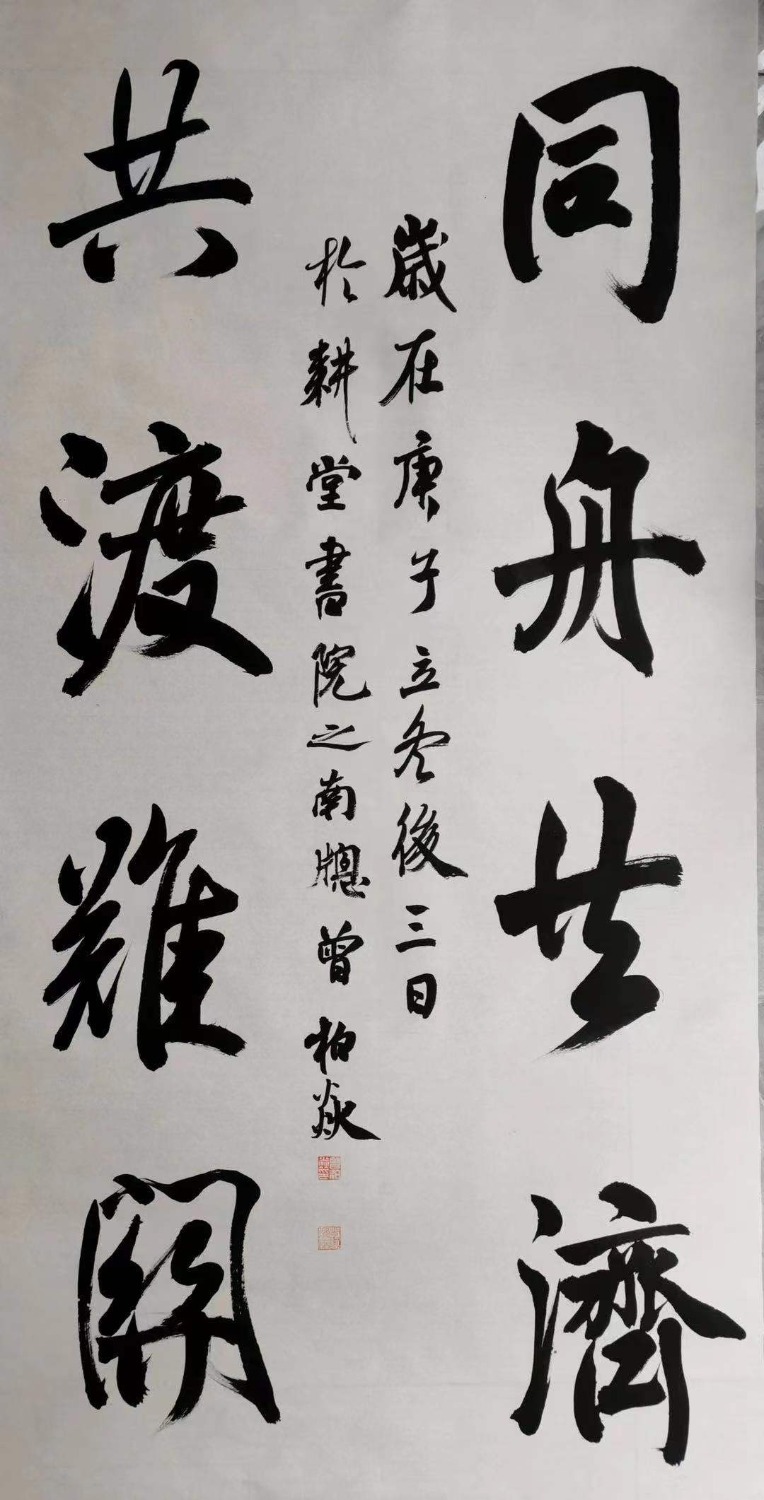 同舟共濟
歲在庚子立冬後三日
於耕堂書院之南牕曾柏焱
共渡難關